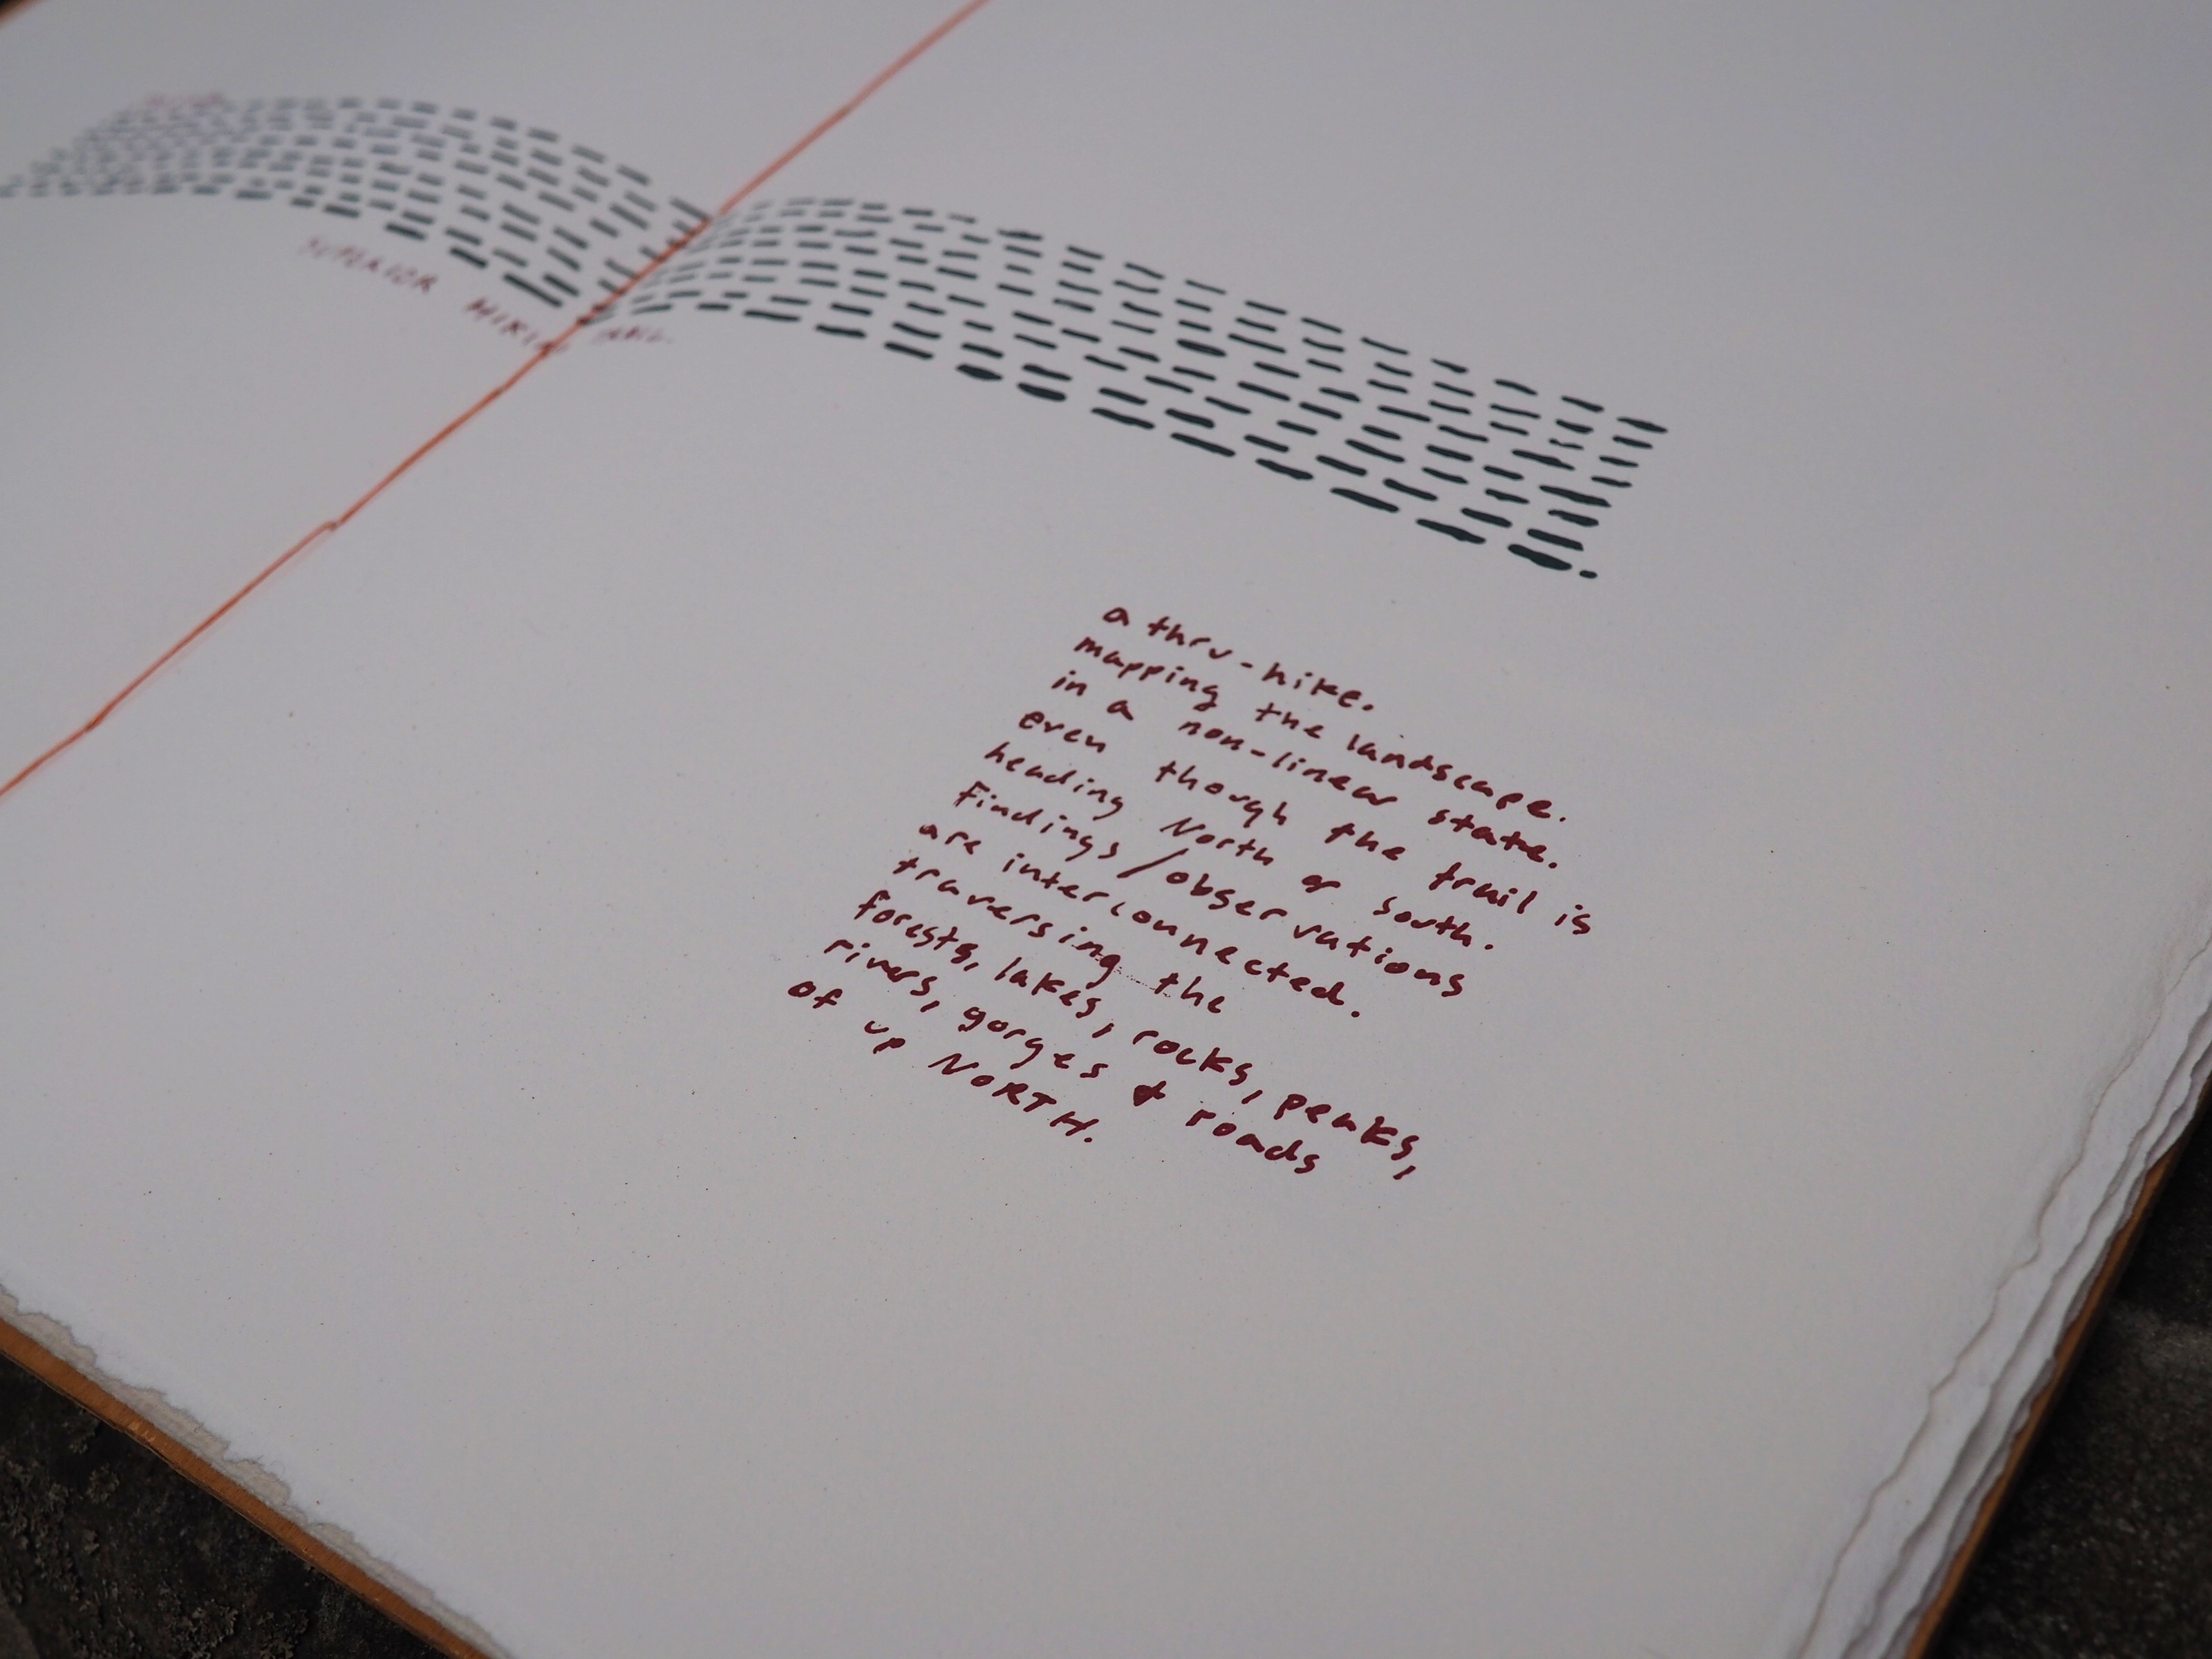 SUPERIOR HIKING TRAIL.
a thru-hike.
mapping the landscape.
in a non-linear state.
even though the trail is
heading North or south.
findings/observations
are interconnected.
traversing the
forests, lakes, rocks, peaks,
rivers, gorges & roads
of up NORTH.